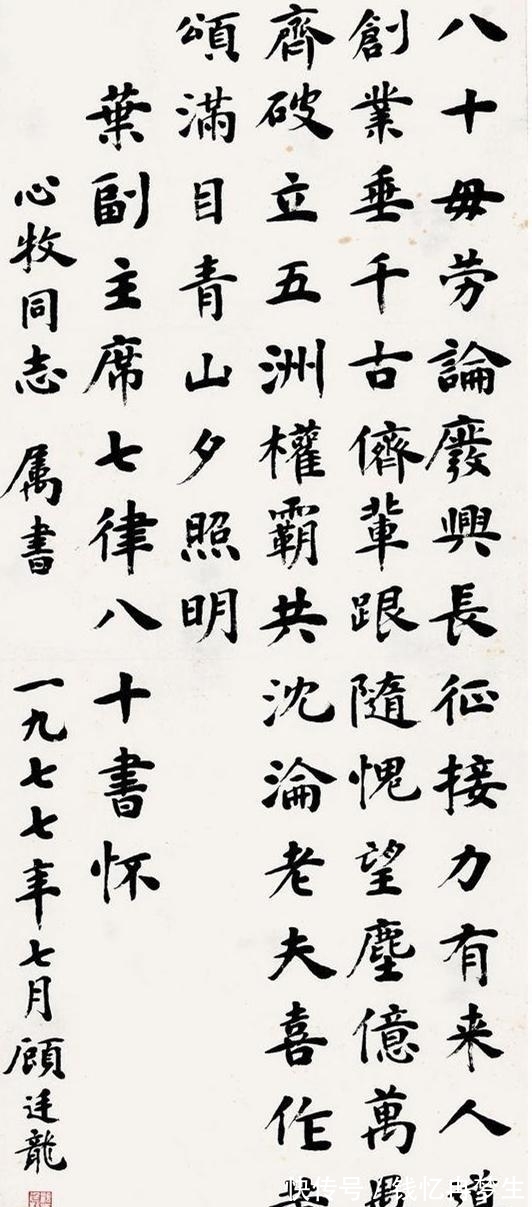 八十毋劳論廢興長征接力有来人
創業垂千古儕輩跟隨愧望塵億萬
齊破立五洲權霸共沈淪老夫喜作
頌滿目青山夕照明
葉副主席七律八十書怀
心牧同志 属書 一九七七年七月顧廷龍
快传号